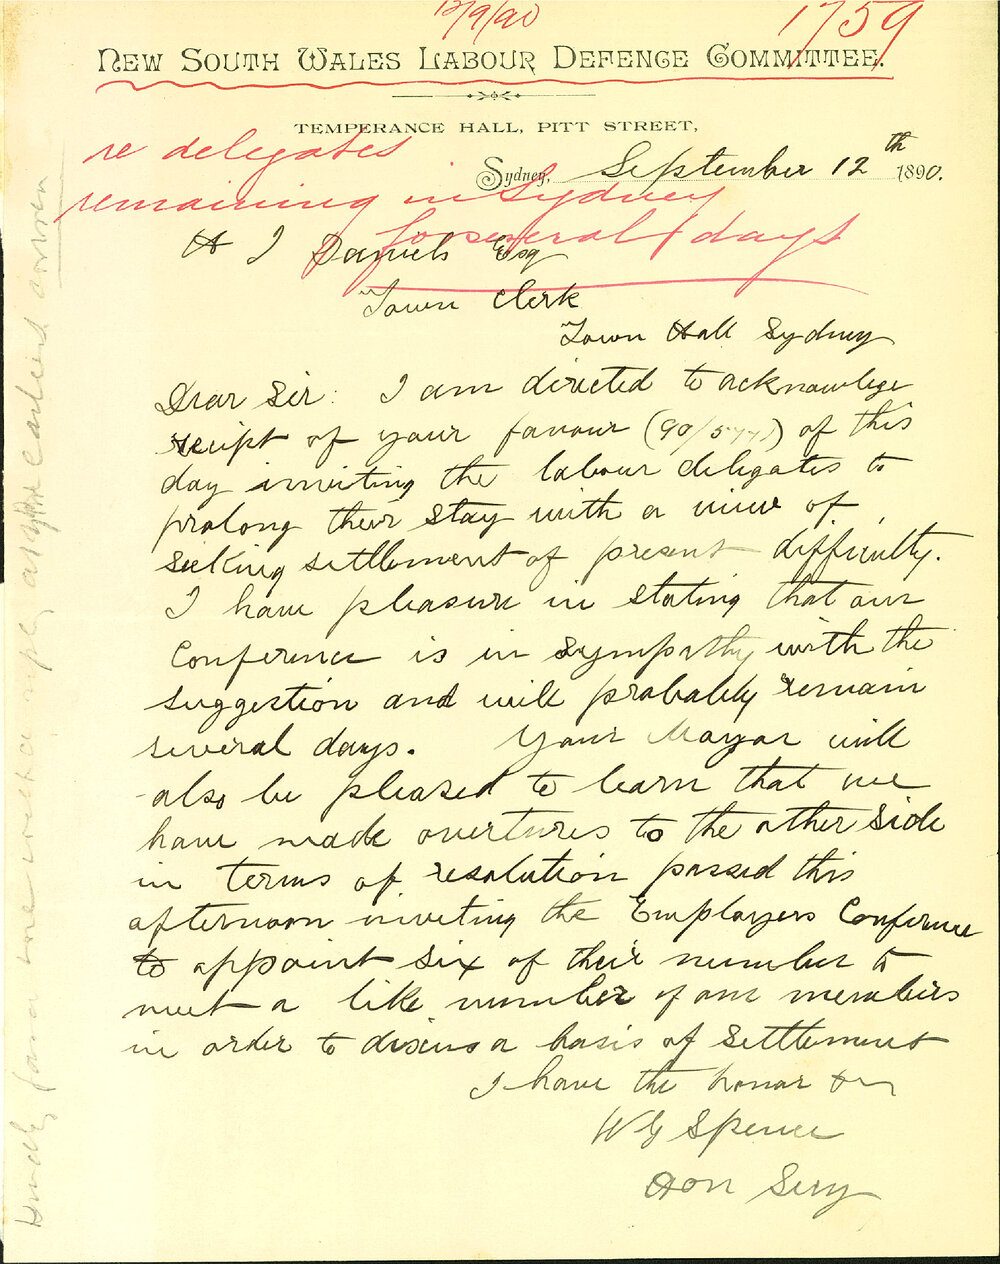 12/9/90
1759
NEW SOUTH WALES LABOUR DEFENCE COMMITTEE.
TEMPERANCE HALL, PITT STREET,
Sydney, September 12th 1890.
re delegates
remaining in Sydney
for several days
H J Daniels Esq
Town Clerk
Town Hall Sydney
Dear Sir: I am directed to acknowlege
receipt of your favour (90/5 ) of this
day inviting the labour delegates to
prolong their stay with a view of
seeking settlement of present difficulty.
I have pleasure in stating that our
Conference is in sympathy with the
suggestion and will probably remain
several days. Your Mayor will
also be pleased to learn that we
have made overtures to the other side
in terms of resolution passed this
afternoon inviting the Employers Conference
to appoint six of their number to
meet a like number of our members
in order to discuss a basis of settlement
I have the honor &c
W G Spence
Hon Secy
Kindly favor me with a reply at the earliest